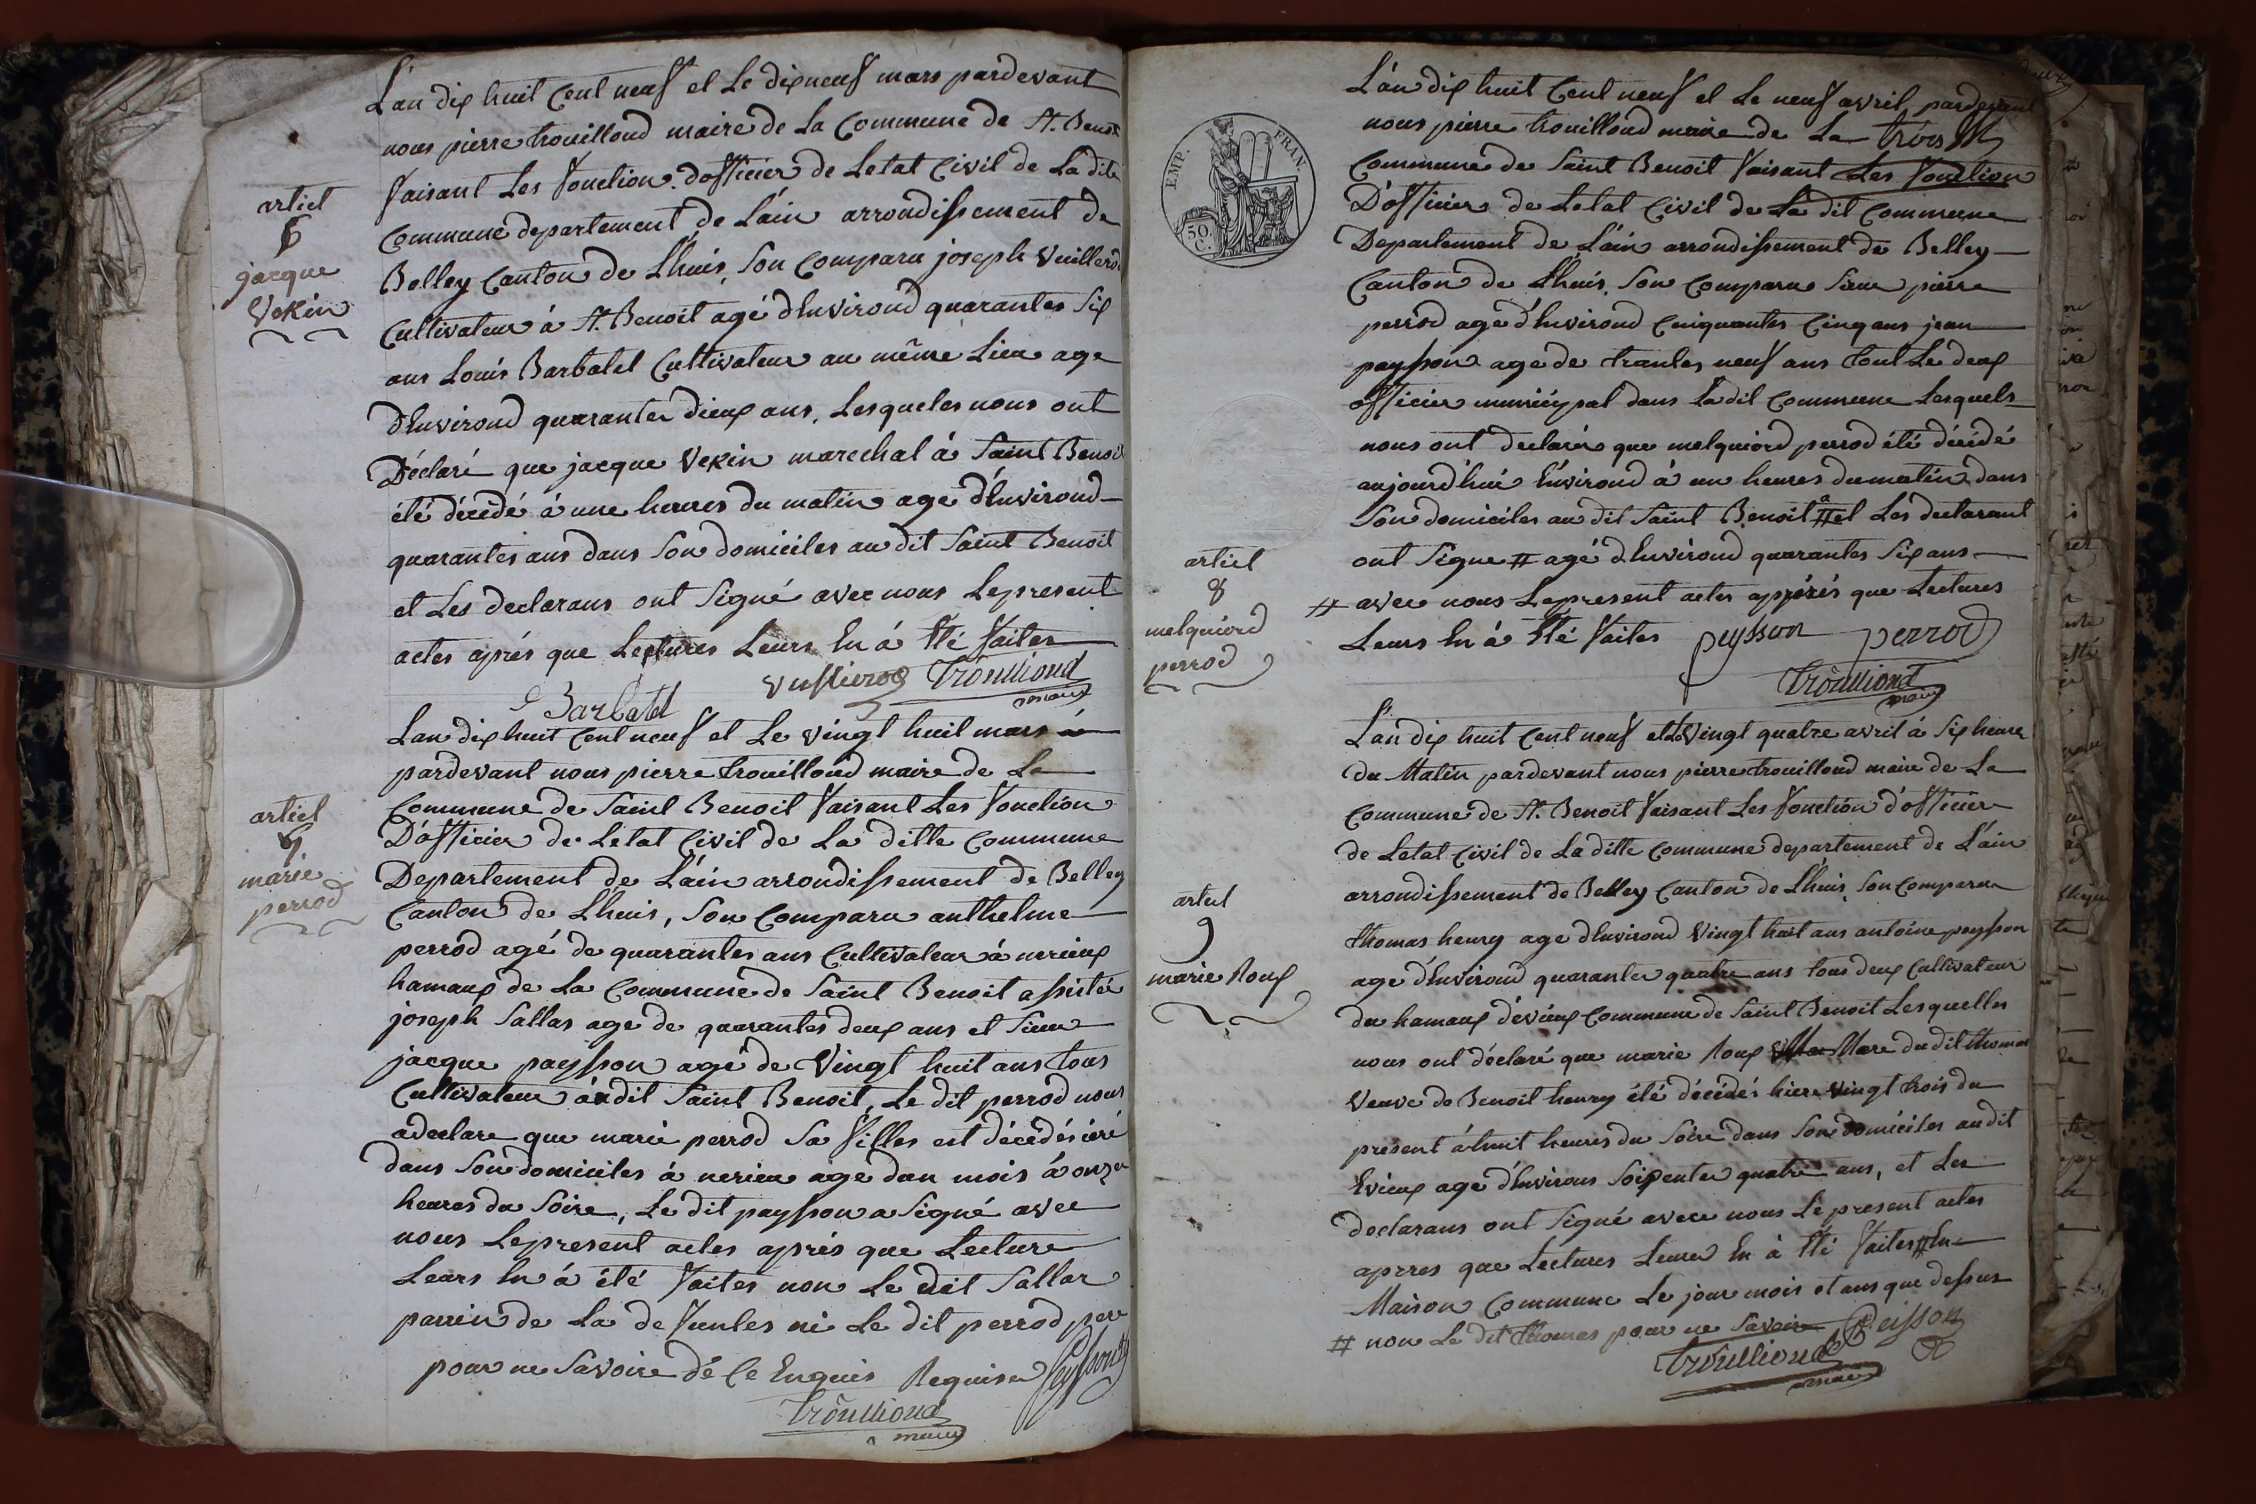 L'an dix huit Cent neuf et Le dix neuf mars pardevant
nous pierre trouilloud maire de La Commune de St. Benoit
faisant Les fonction d'officier de Letat Civil de La dite
Commune departement de L'ain arrondissement de
Belley Canton de Lhuis, Son Comparu joseph Vuillerod
Cultivateur à St. Benoit agé d'Environd quarantes Six
ans Louis Barbatel Cultivateur au même Lieu age
d'Environd quarantes dieux ans, Lesqueles nous ont
Déclaré que jacque Vekin marechal à Saint Benoit
été décédé à une heures du matin age d'Environd
quarantes ans dans Son domiciles au dit Saint Benoit
et Les declarans ont Signé avec nous Lepresent
actes aprés que Lectures Leurs En á Eté faites
Barbatel Vullierod Trôulliond
maire
artiel
6
jacque
Vekin
Lan dix huit Cent neuf et Le vingt huit mars à
pardevant nous pierre trouilloud maire de La
Commune de Saint Benoit faisant Les fonction
D'officier de Letat Civil de La ditte Commune
Departement de L'ain arrondissement de Belley
Canton de Lhuis, Son Comparu anthelme
perrod agé de quarantes ans Cultivateur à nerieux
hamaux de La Commune de Saint Benoit assisté
joseph Sallas age de quarantes deux ans et Sieur
jacque paysson agé de Vingt huit ans tous
Cultivateur áudit Saint Benoit, Le dit perrod nous
adeclare que marie perrod Sa filles est décédés ieré
dans Son domiciles à nerieu age dun mois à onze
heures du Soire, Le dit paysson a Signé avec
nous Lepresent actes aprés que Lecture
Leurs En á été faites non Le dit Sallar
parrin de La defuntes ni Le dit perrod pere
pour ne Savoire dé Ce Enquis Requise Peysson
Trôulliond
maire
artiel
7
marie
perrod
EMP. FRAN.
50
C.
L'an dix huit Cent neuf et Le neuf avril, pardevant
nous pierre trouilloud maire de La
trois
Commune de Saint Benoit faisant Les fonction
D'officier de Letat Civil de La dit Commune
Departement de L'ain arrondissement de Belley
Canton de Lhuis, Son Comparu Sieur pierre
perrod age d'Environd Cinquantes Cinq ans jean
paysson age de trantes neuf ans tout Le deux
officier municipal dans La dit Commune Lesquels
nous ont declarés que melquiord perrod été décédé
aujourd'hui Environd à un heures dumatin dans
Son domiciles au dit Saint Benoit # et Les declarant
ont Signe # agé d'Environd quarantes Six ans
# avec nous Lepresent actes apprés que Lectures
Leurs En á Eté faites peysson perrod
Trôulliond
maire
artiel
8
melquiord
perrod
L'an dix huit Cent neuf et Le Vingt quatre avril á Six heure
du Matin pardevant nous pierre trouilloud maire de La
Commune de St. Benoit faisant Les fonction d'officier
de Letat Civil de La ditte Commune departement de L'ain
arrondissement de Belley Canton de Lhuis, Son Comparu
thomas henry age d'Environd Vingt huit ans antoine paysson
age d'Environd quarantes quatre ans tous deux Cultivateur
du hamaux d'évieux Commune de Saint Benoit Lesquelles
nous ont déclaré que marie Roux Mare du dit thomas
Veuve de Benoit henry été décédés hiere vingt trois du
présent á huit heures du Soire dans Son domiciles au dit
Evieux age d'Environs Soixentes quatre ans, et Les
declarans ont Signé avece nous Le present actes
aprres que Lectures Leures En à Eté faites # En
Maison Commune Le jour mois et ans que dessus
# non Le dit thomas pour ne Savoire Peisson
Trôulliond
maire
artiel
9
marie Roux